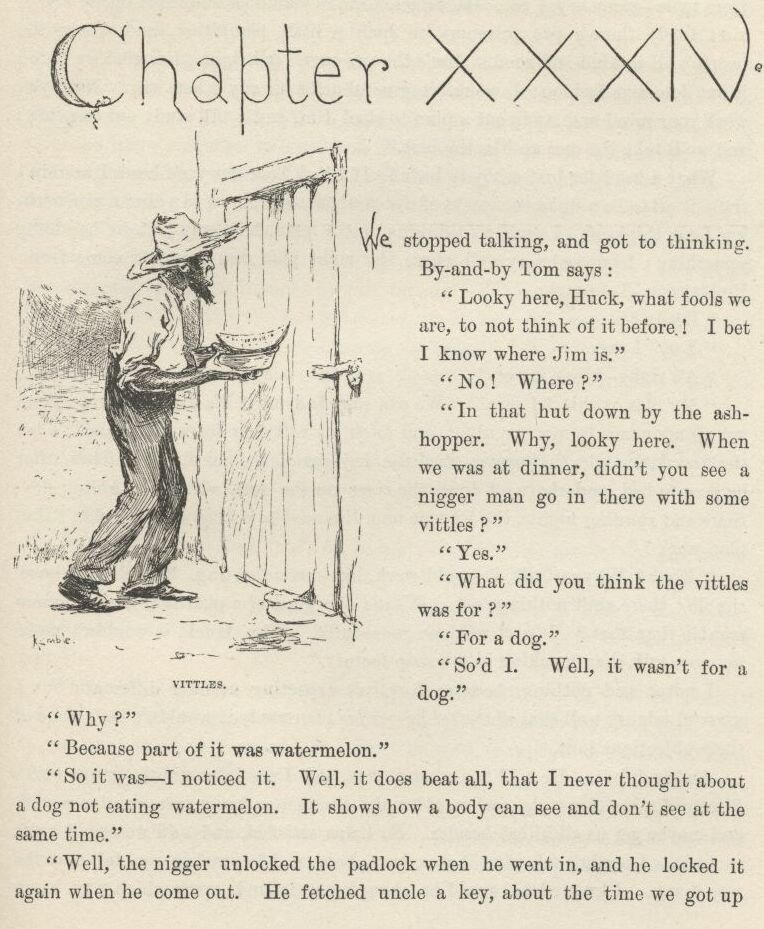 Chapter XXXIV.
We stopped talking, and got to thinking.
By-and-by Tom says :
“ Looky here, Huck, what fools we
are, to not think of it before ! I bet
I know where Jim is.”
“ No ! Where ?”
“ In that hut down by the ash-
hopper. Why, looky here. When
we was at dinner, didn't you see a
nigger man go in there with some
vittles ?”
“ Yes.”
“ What did you think the vittles
was for ?”
“ For a dog.”
“ So'd I. Well, it wasn't for a
dog.”
VITTLES.
“ Why ?”
“ Because part of it was watermelon.”
“ So it was—I noticed it. Well, it does beat all, that I never thought about
a dog not eating watermelon. It shows how a body can see and don't see at the
same time.”
“ Well, the nigger unlocked the padlock when he went in, and he locked it
again when he come out. He fetched uncle a key, about the time we got up